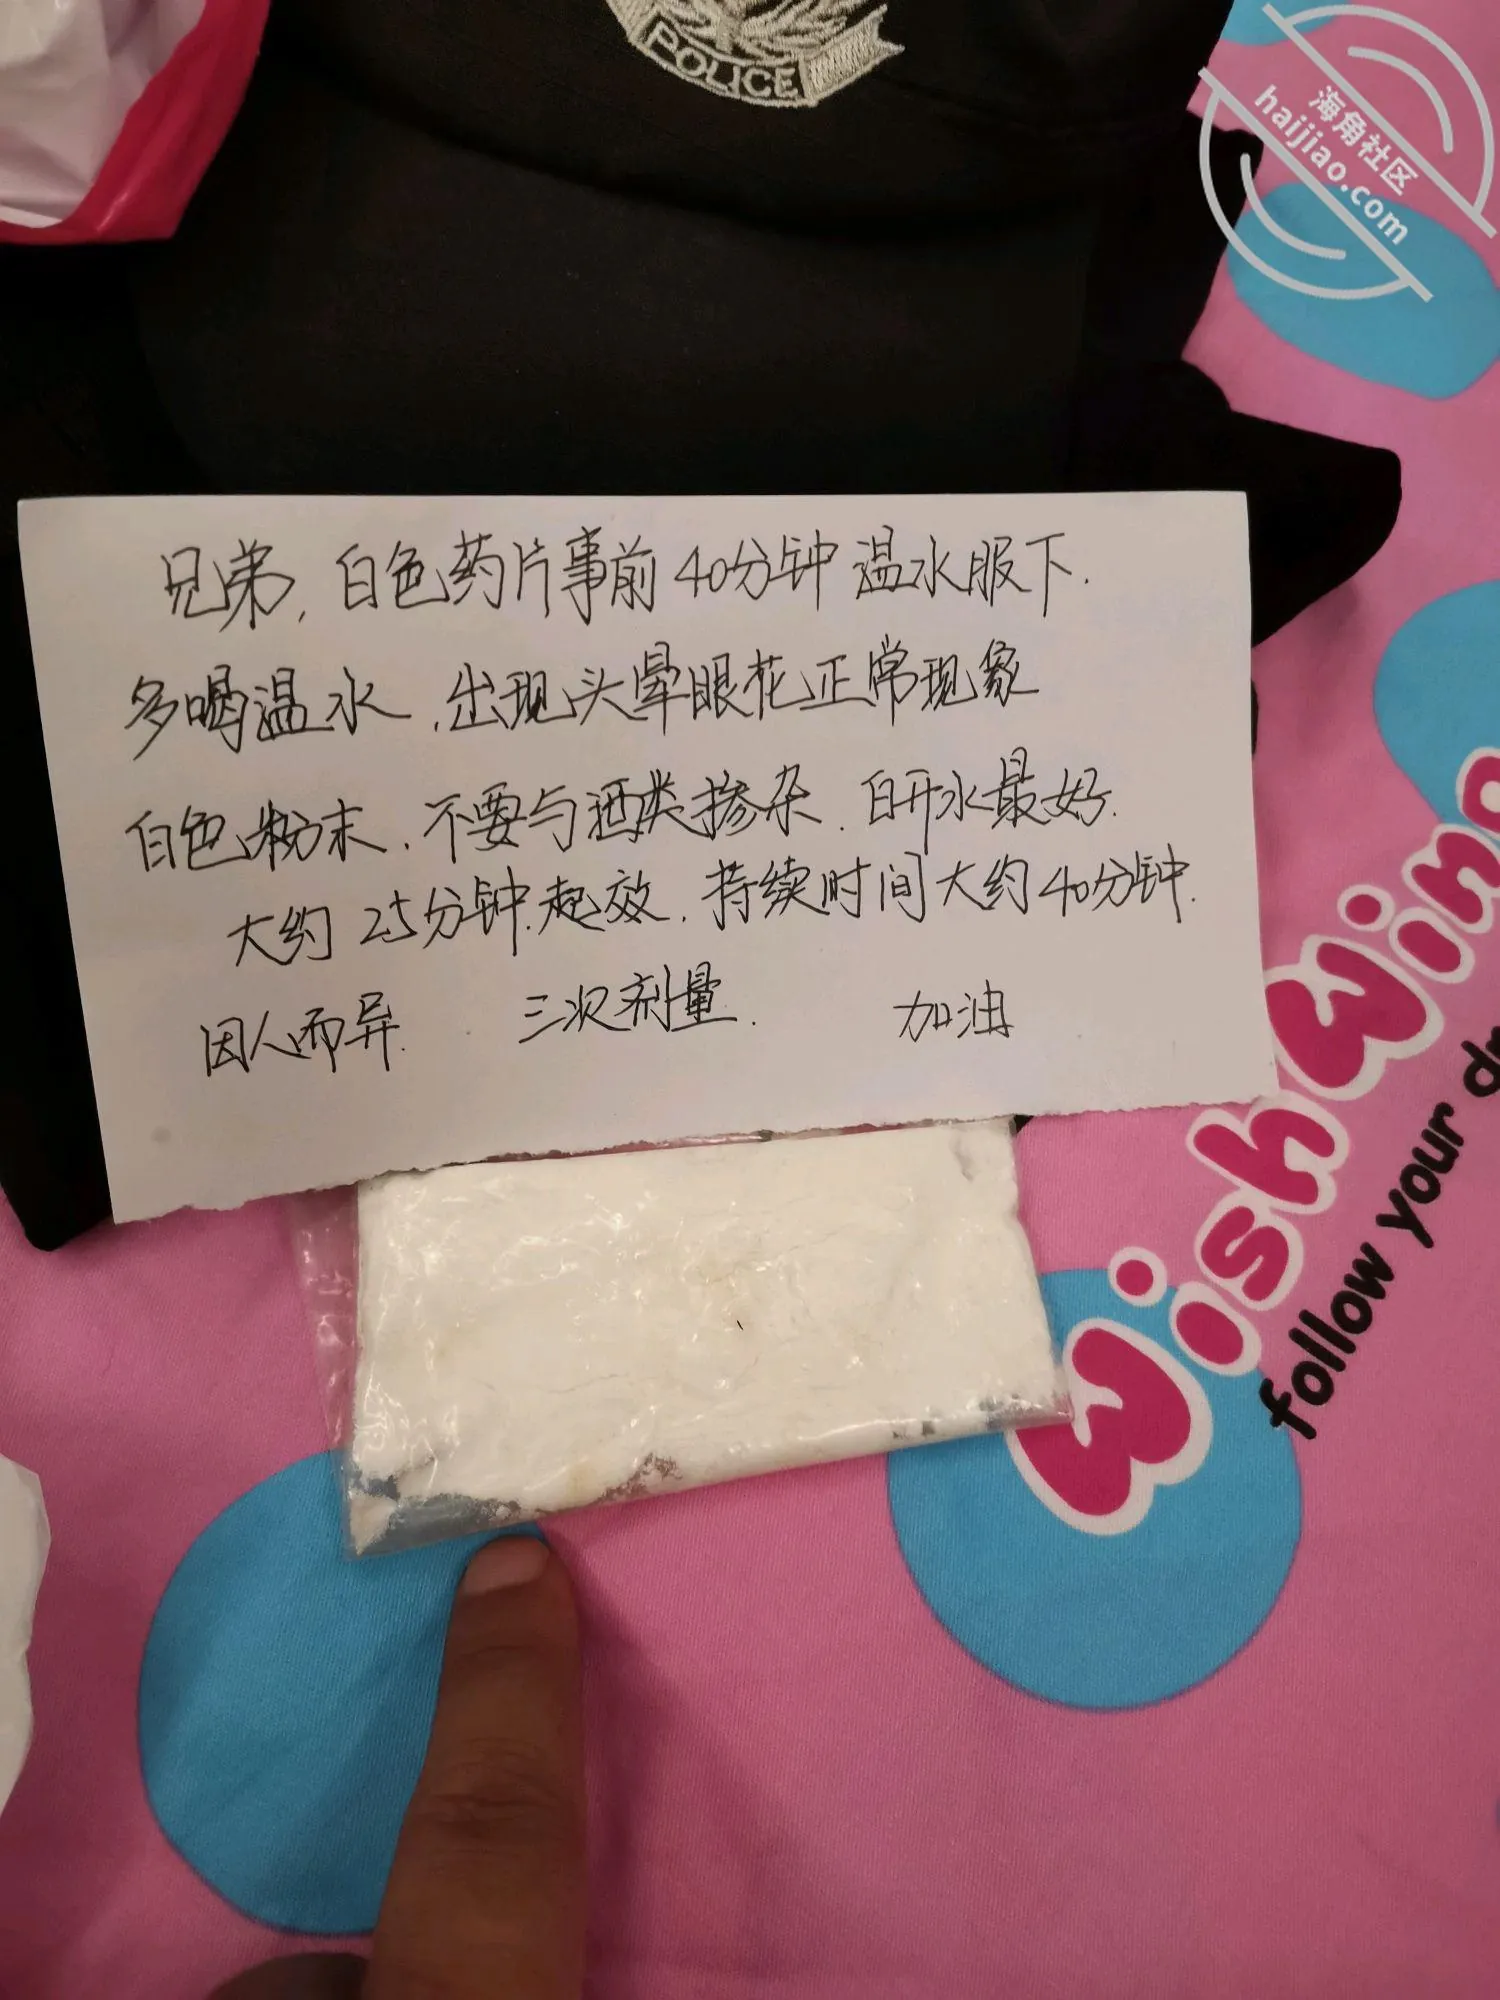 POLICE
海角社区
haijiao.com
兄弟,白色药片事前40分钟温水服下.
多喝温水.出现头晕眼花正常现象
白色粉末.不要与酒类掺杂.白开水最好.
大约25分钟.起效.持续时间大约40分钟.
因人而异. 三次剂量. 加油
WishWing
follow your dr